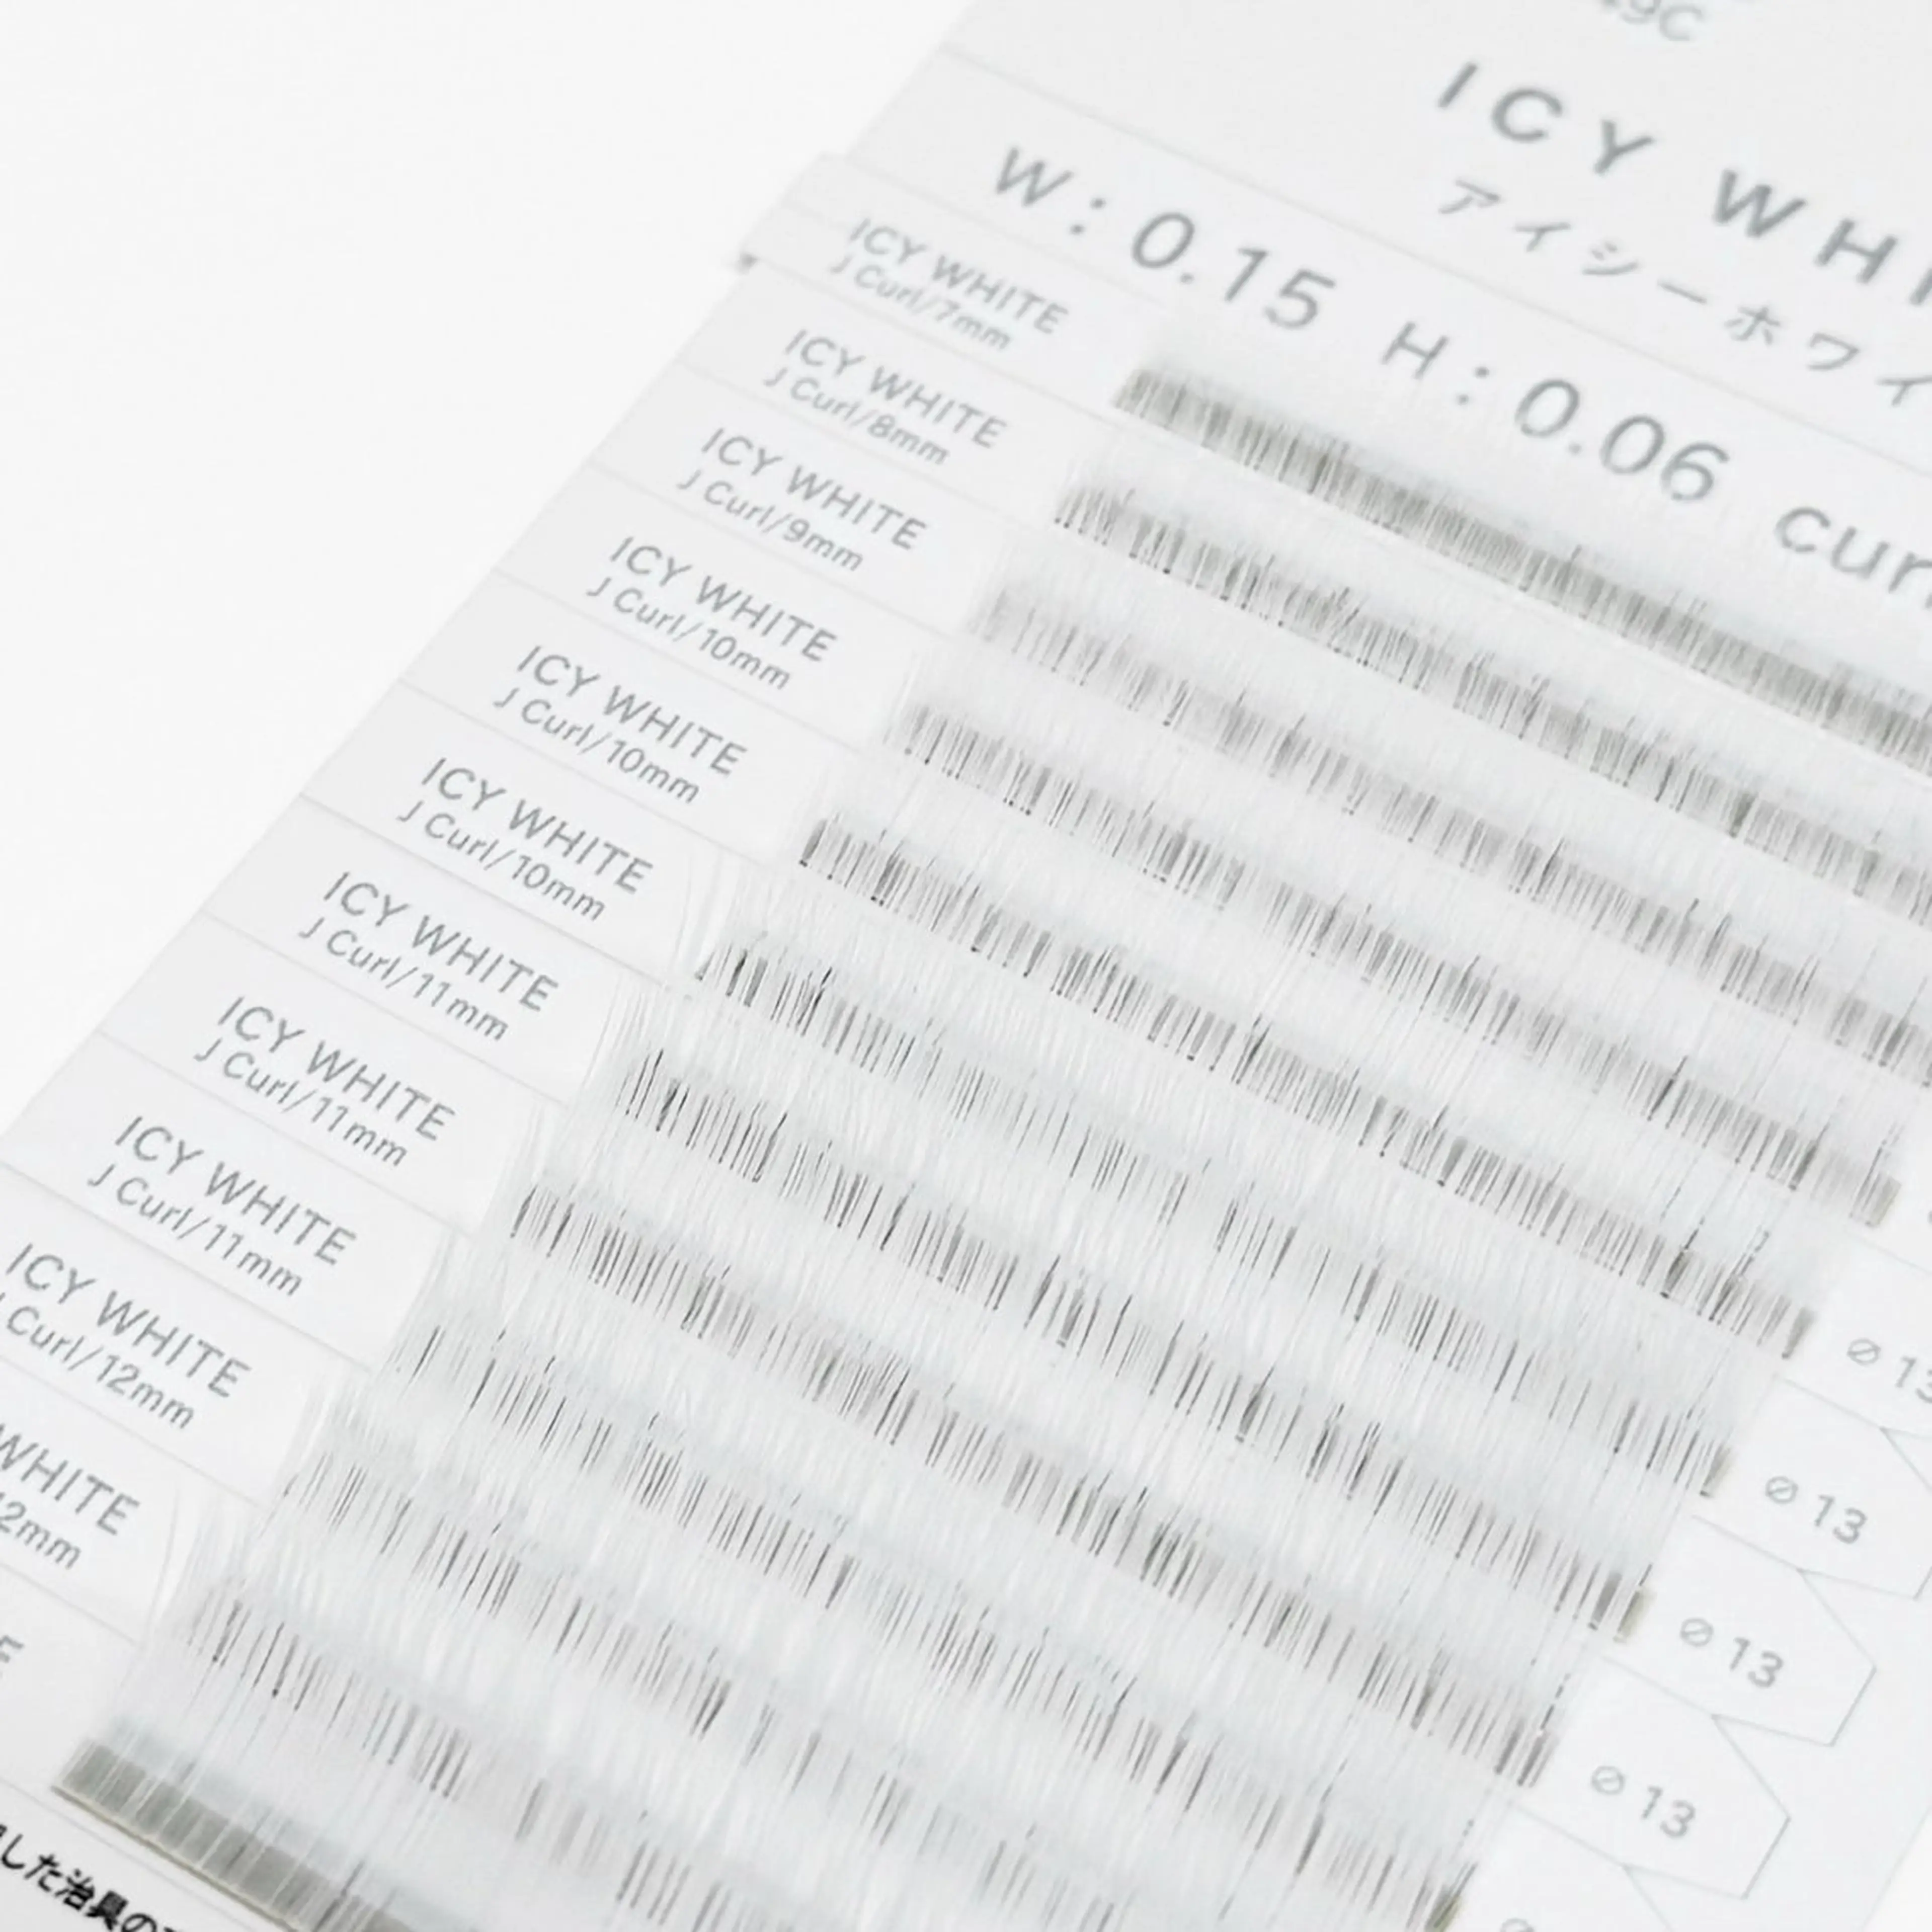 49C
ICY WHI
アイシーホワイ
W: 0.15 H: 0.06 cur
ICY WHITE
J Curl/7mm
ICY WHITE
J Curl/8mm
ICY WHITE
J Curl/9mm
ICY WHITE
J Curl/10mm
ICY WHITE
J Curl/10mm
ICY WHITE
J Curl/10mm
ICY WHITE
J Curl/11mm
ICY WHITE
J Curl/11mm
ICY WHITE
J Curl/11mm
ICY WHITE
J Curl/12mm
WHITE
2mm
E
⌀ 13
⌀ 13
⌀ 13
⌀ 13
した治具の